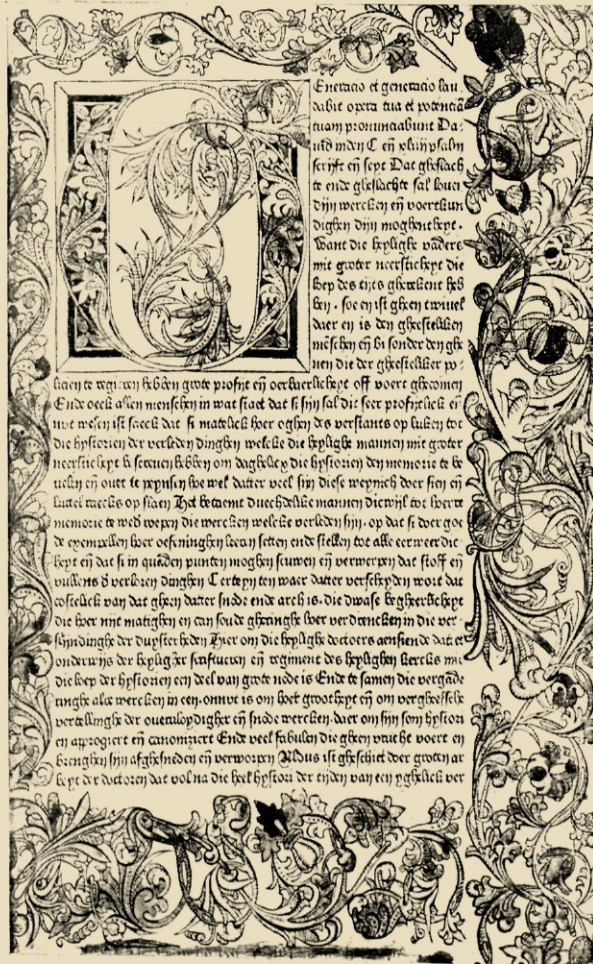 Eneracio et generacio lau
dabit opera tua et potenciā
tuam pronunciabunt Da⸗
uid inden C eñ xliiij psalm
scrijft eñ seyt Dat gheslach
te ende gheslachte sal louen
dijn wercken eñ voertkun
dighen dijn moghentheyt.
Want die heylighe vadere
mit groter neersticheyt die
loep des tijts gherekent heb
ben. soe en ist gheen twiuel
daer en is den gheesteliken
mēschen eñ bi sonder den ghe
nen die der gheesteliker po⸗
licien te regiren hebben grote profijt eñ oerbaerlicheyt off voert ghecomen
Ende oeck allen menschen in wat staet dat si sijn sal dit seer profitelick eñ
nut wesen ist saeck dat si matelick hoer oghen des verstants op luken tot
die hystorien der verleden dinghen welcke die heylighe mannen mit groter
neersticheyt bescreuen hebben om daghelicx die hystorien den memorie te be
uelen eñ ouer te peynsen hoe wel datter veel sijn diese weynich doer sien eñ
luttel roecks op slaen Het betaemt duechdelike mannen die wijl tot hoerre
memorie te wed roepen die wercken welcke verleden sijn. op dat si doer goe
de exempelen hoer oefeninghen leeren setten ende stellen tot alle eerweerdic
heyt eñ dat si in quaden punten moghen scuwen eñ verwerpen dat stoff eñ
vullens d verloren dinghen Certeyn ten waer datter verscheyden wort dat
costelick van dat gheen datter snode ende arch is. die dwase begheerlicheyt
die hoer niet matighen en can soude gheringhe hoer verdrencken in die ver⸗
slindinghe der duysterheden Hier om die heylighe doctoers aensiende dat et
onderwijs der heyligher scriftueren eñ regiment des heylighen kercks mit
die loep der hystorien een deel van grote node is Ende te samen die vergade
ringhe alre wercken in een. onnut is om hoer grootheyt eñ om vergheefsche
vertellinghe der oueruloedigher eñ snode wercken. daer om sijn som hystori
en approgiert eñ canonizeert Ende veel fabulen die gheen vrucht voert en
brenghen sijn afghesneden eñ verworpen Aldus ist gheschiet doer groten ar
beyt der doctoren dat wel na die heel hystori der tijden van een yghelick ver